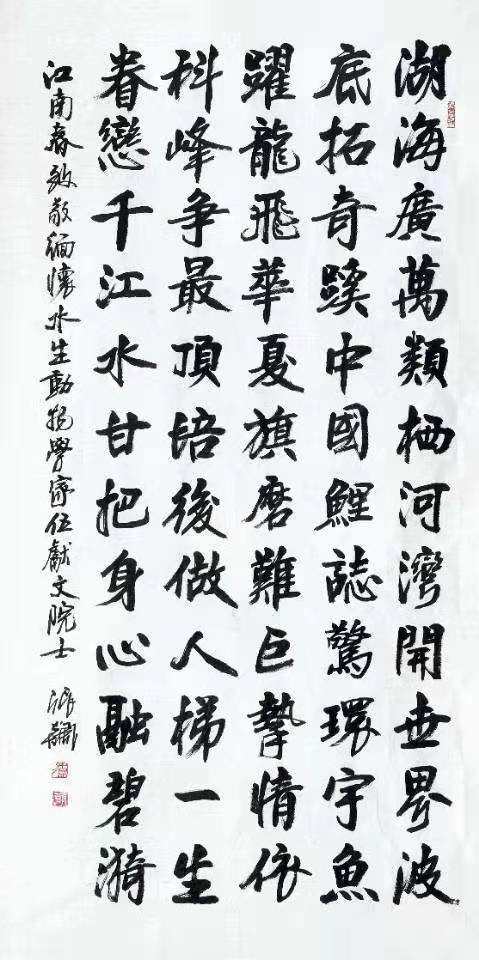 湖海廣萬類栖河灣開世界波
底拓奇蹊中國鯉誌驚環宇魚
躍龍飛華夏旗磨難巨摯情依
科峰争最頂培後做人梯一生
眷戀千江水甘把身心融碧漪
江南春致敬緬懷水生動物學家伍獻文院士